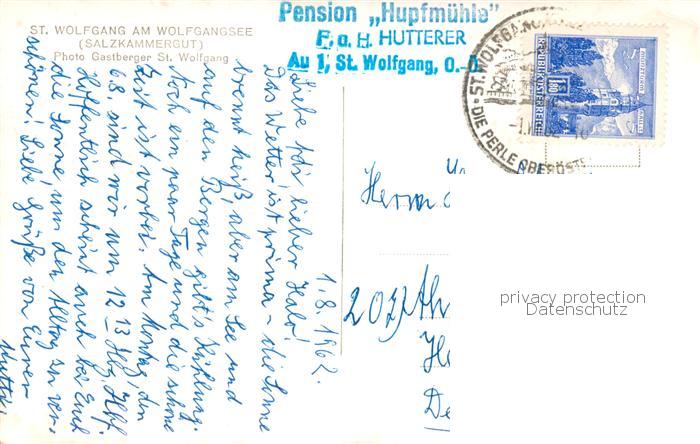 ST. WOLFGANG AM WOLFGANGSEE
(SALZKAMMERGUT)
Photo Gastberger St. Wolfgang
Pension „Hupfmühle"
F. o. H. HUTTERER
Au 1, St. Wolfgang, O.-Ö.
ST. WOLFGANG
DIE PERLE OBERÖST
REPUBLIK ÖSTERREICH
1.8.1962.
Liebe lieber
Das Wetter ist prima - die Sonne
brennt heiß, aber am See und
auf den Bergen gibt's Kühlung.
Noch ein paar Tage und die schöne
Zeit ist vorbei. Am Montag, den
6.8. sind wir um 12 13 Hbg. Hbf.
Hoffentlich scheint auch bei Euch
die Sonne, um den Alltag zu ver-
schönen! Liebe Grüße von Eurer
Mutti.
Herrn
privacy protection
Datenschutz